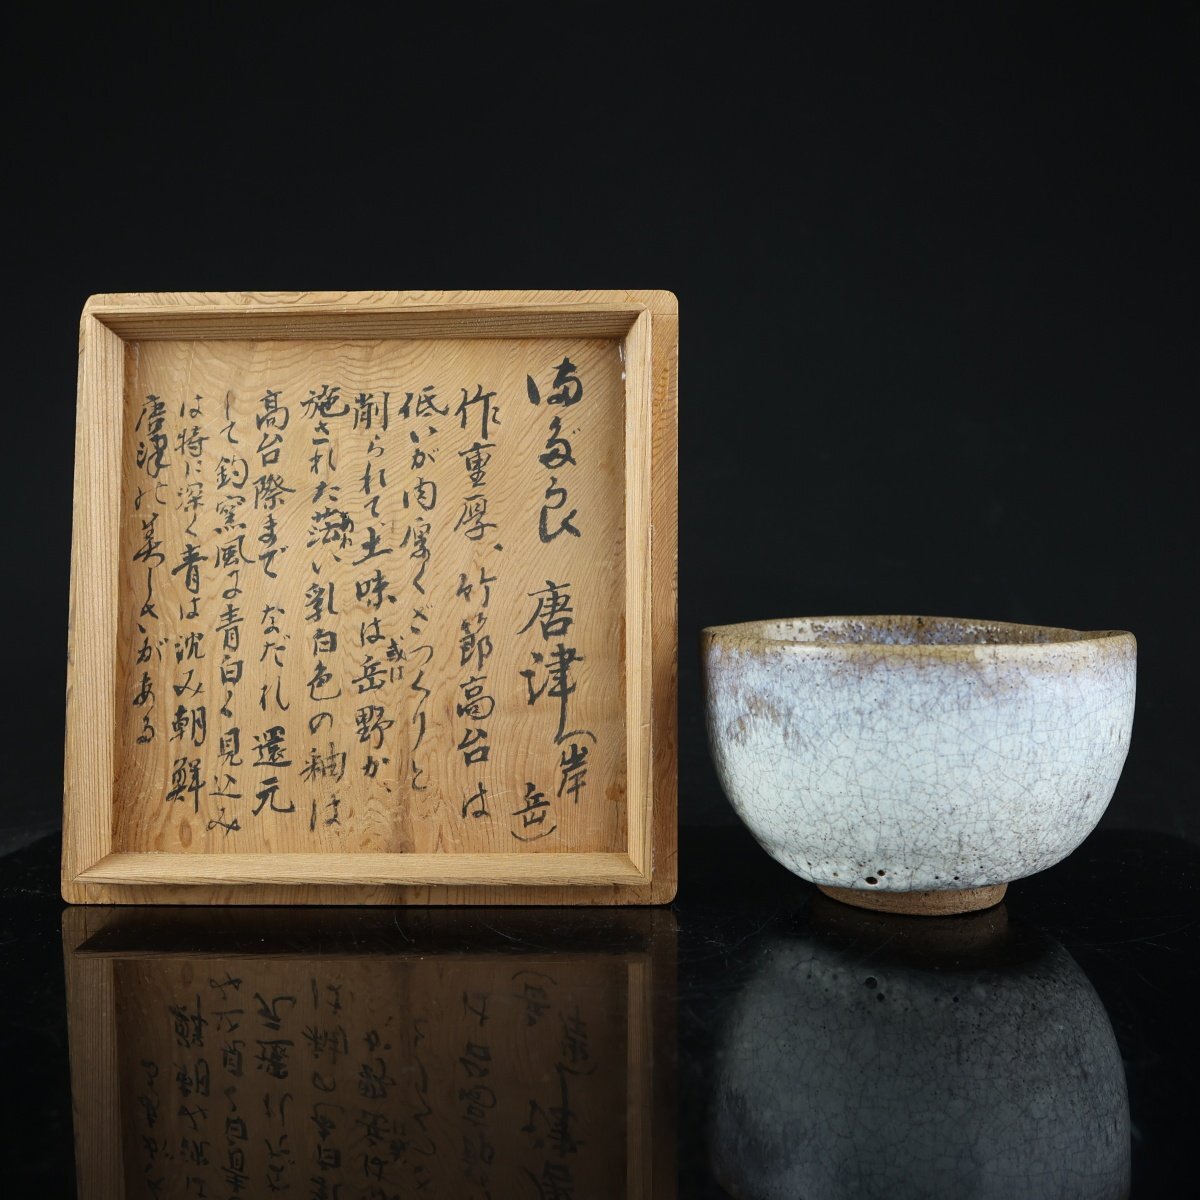 まだら 唐津(岸岳)
作重厚、竹節高台は
低いが肉厚くざっくりと
削られて土味は岳野か、
或は
施された藁い乳白色の釉は
高台際まで なだれ 還元
して鈞窯風に青白く見込み
は特に深く青は沈み朝鮮
唐津の美しさがある